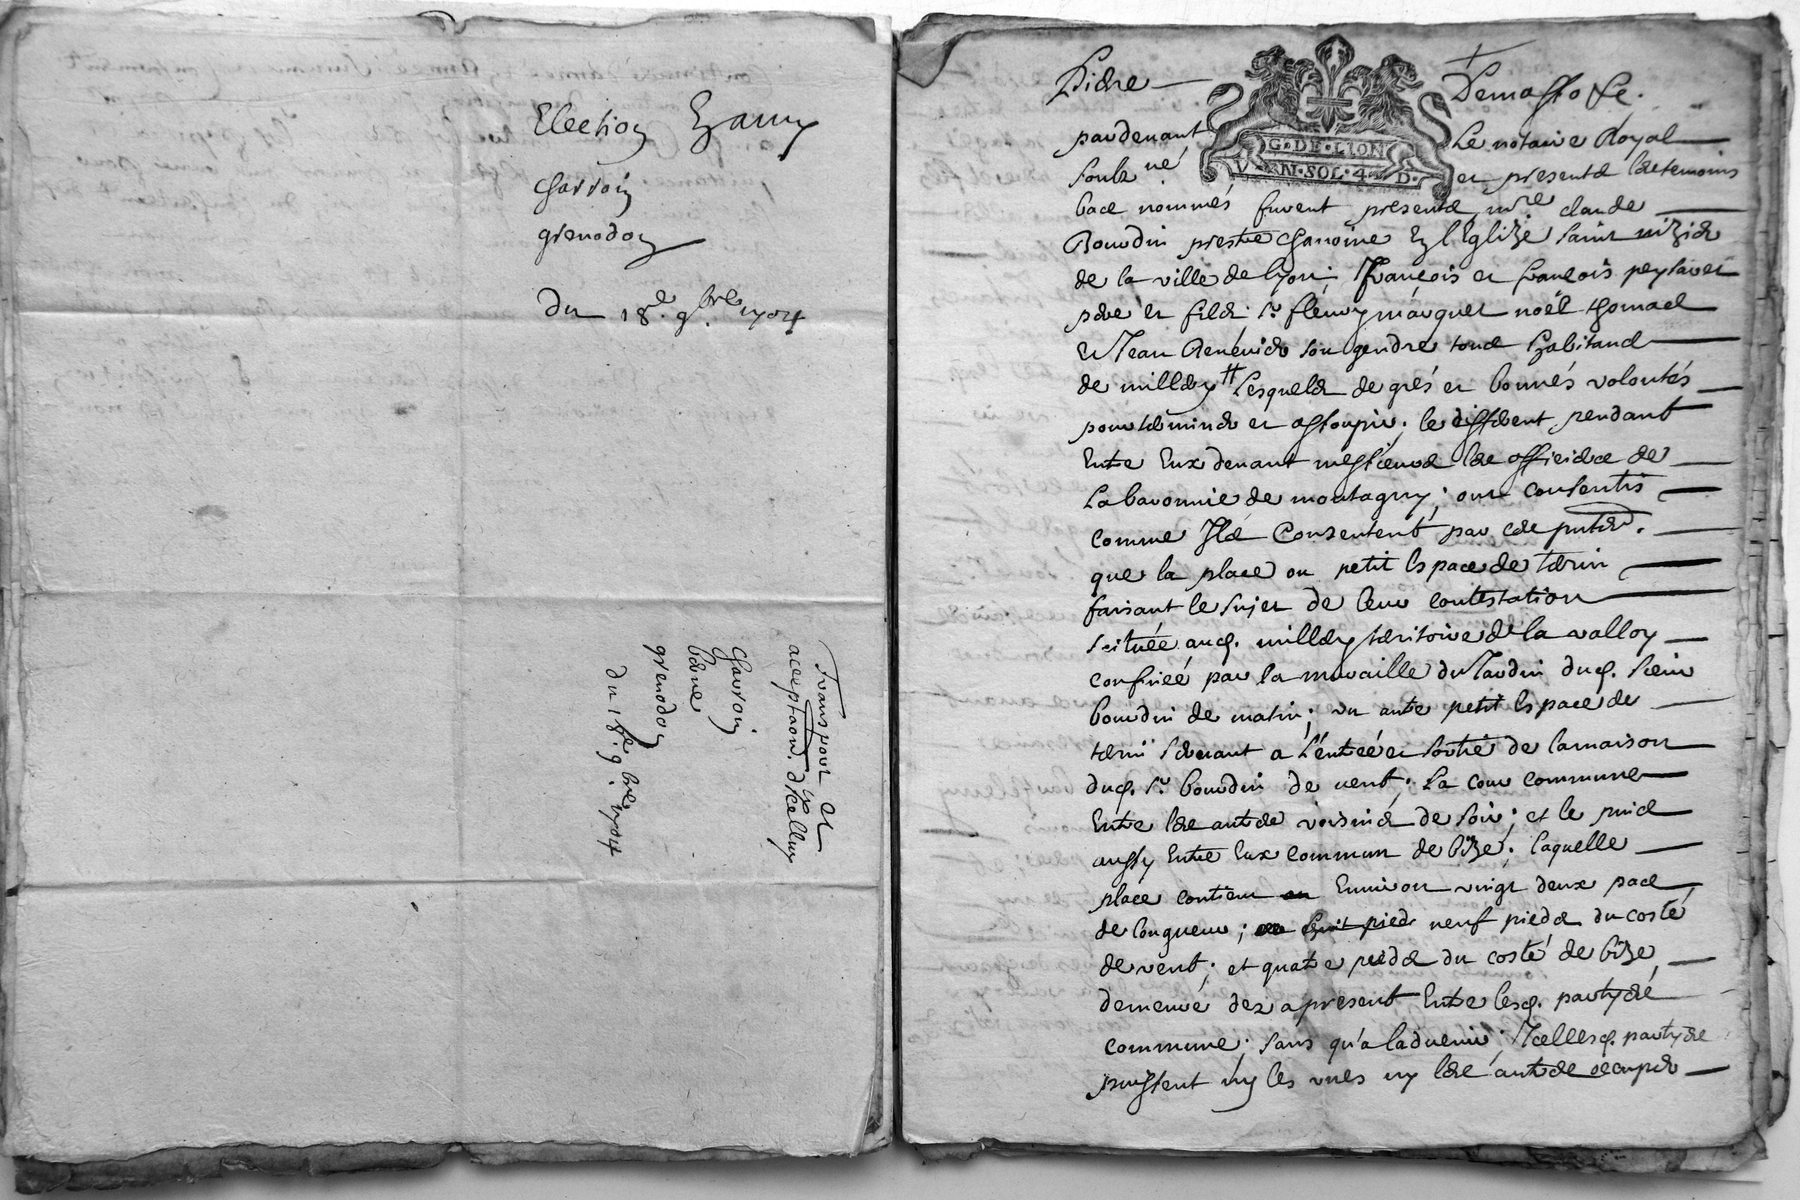 Election En amy
Charvin
grenodon
Du 18.e 9.bre 1704
Transport et
acceptaõn d'Icelluy
Charvin
Clere
grenodon
du 18.e 9.bre 1704
G·DE·LION
VERN·SOL·4·D·
pardevant Le notaire Royal
soubz né et presents les temoins
bas nommés furent presents mre claude
Bourdin prestre chanoine En l'Eglize saint nizier
de la ville de lyon; François et françois peysaret
pere et fils; sr. fleury marquet noël thomas
Et Jean Benevid son gendre tous habitans
de millery Lesquels de grés et bonnés volontés
pour terminer et assoupir; le different pendant
Entre Eux devant messieurs les officiers de
La baronnie de montagny; ont consentis
comme Ils Consentent par ces pntes.
que la place ou petit Espace de terrin
faisant le sujet de leur contestation
scituée aud. millery territoire de la valloy
confinéé par la muraille du Jardin dud. sieur
bourdin de matin; un autre petit Espace de
terrin servant a l'entréé et sortie de la maison
dud. sr. bourdin de vent; La cour commune
Entre les autres voisins de soir; et le puid
aussy Entre Eux commun de bize; laquelle
place contient Environ vingt deux pas
de longueur; huit pieds neuf pieds du costé
de vent; et quatre pieds du costé de bize
demeure dez a present Entre lesd. partyes
commune; sans qu'a ladvenir; Icellesd. partyes
puissent ny les unes ny les autres occuper